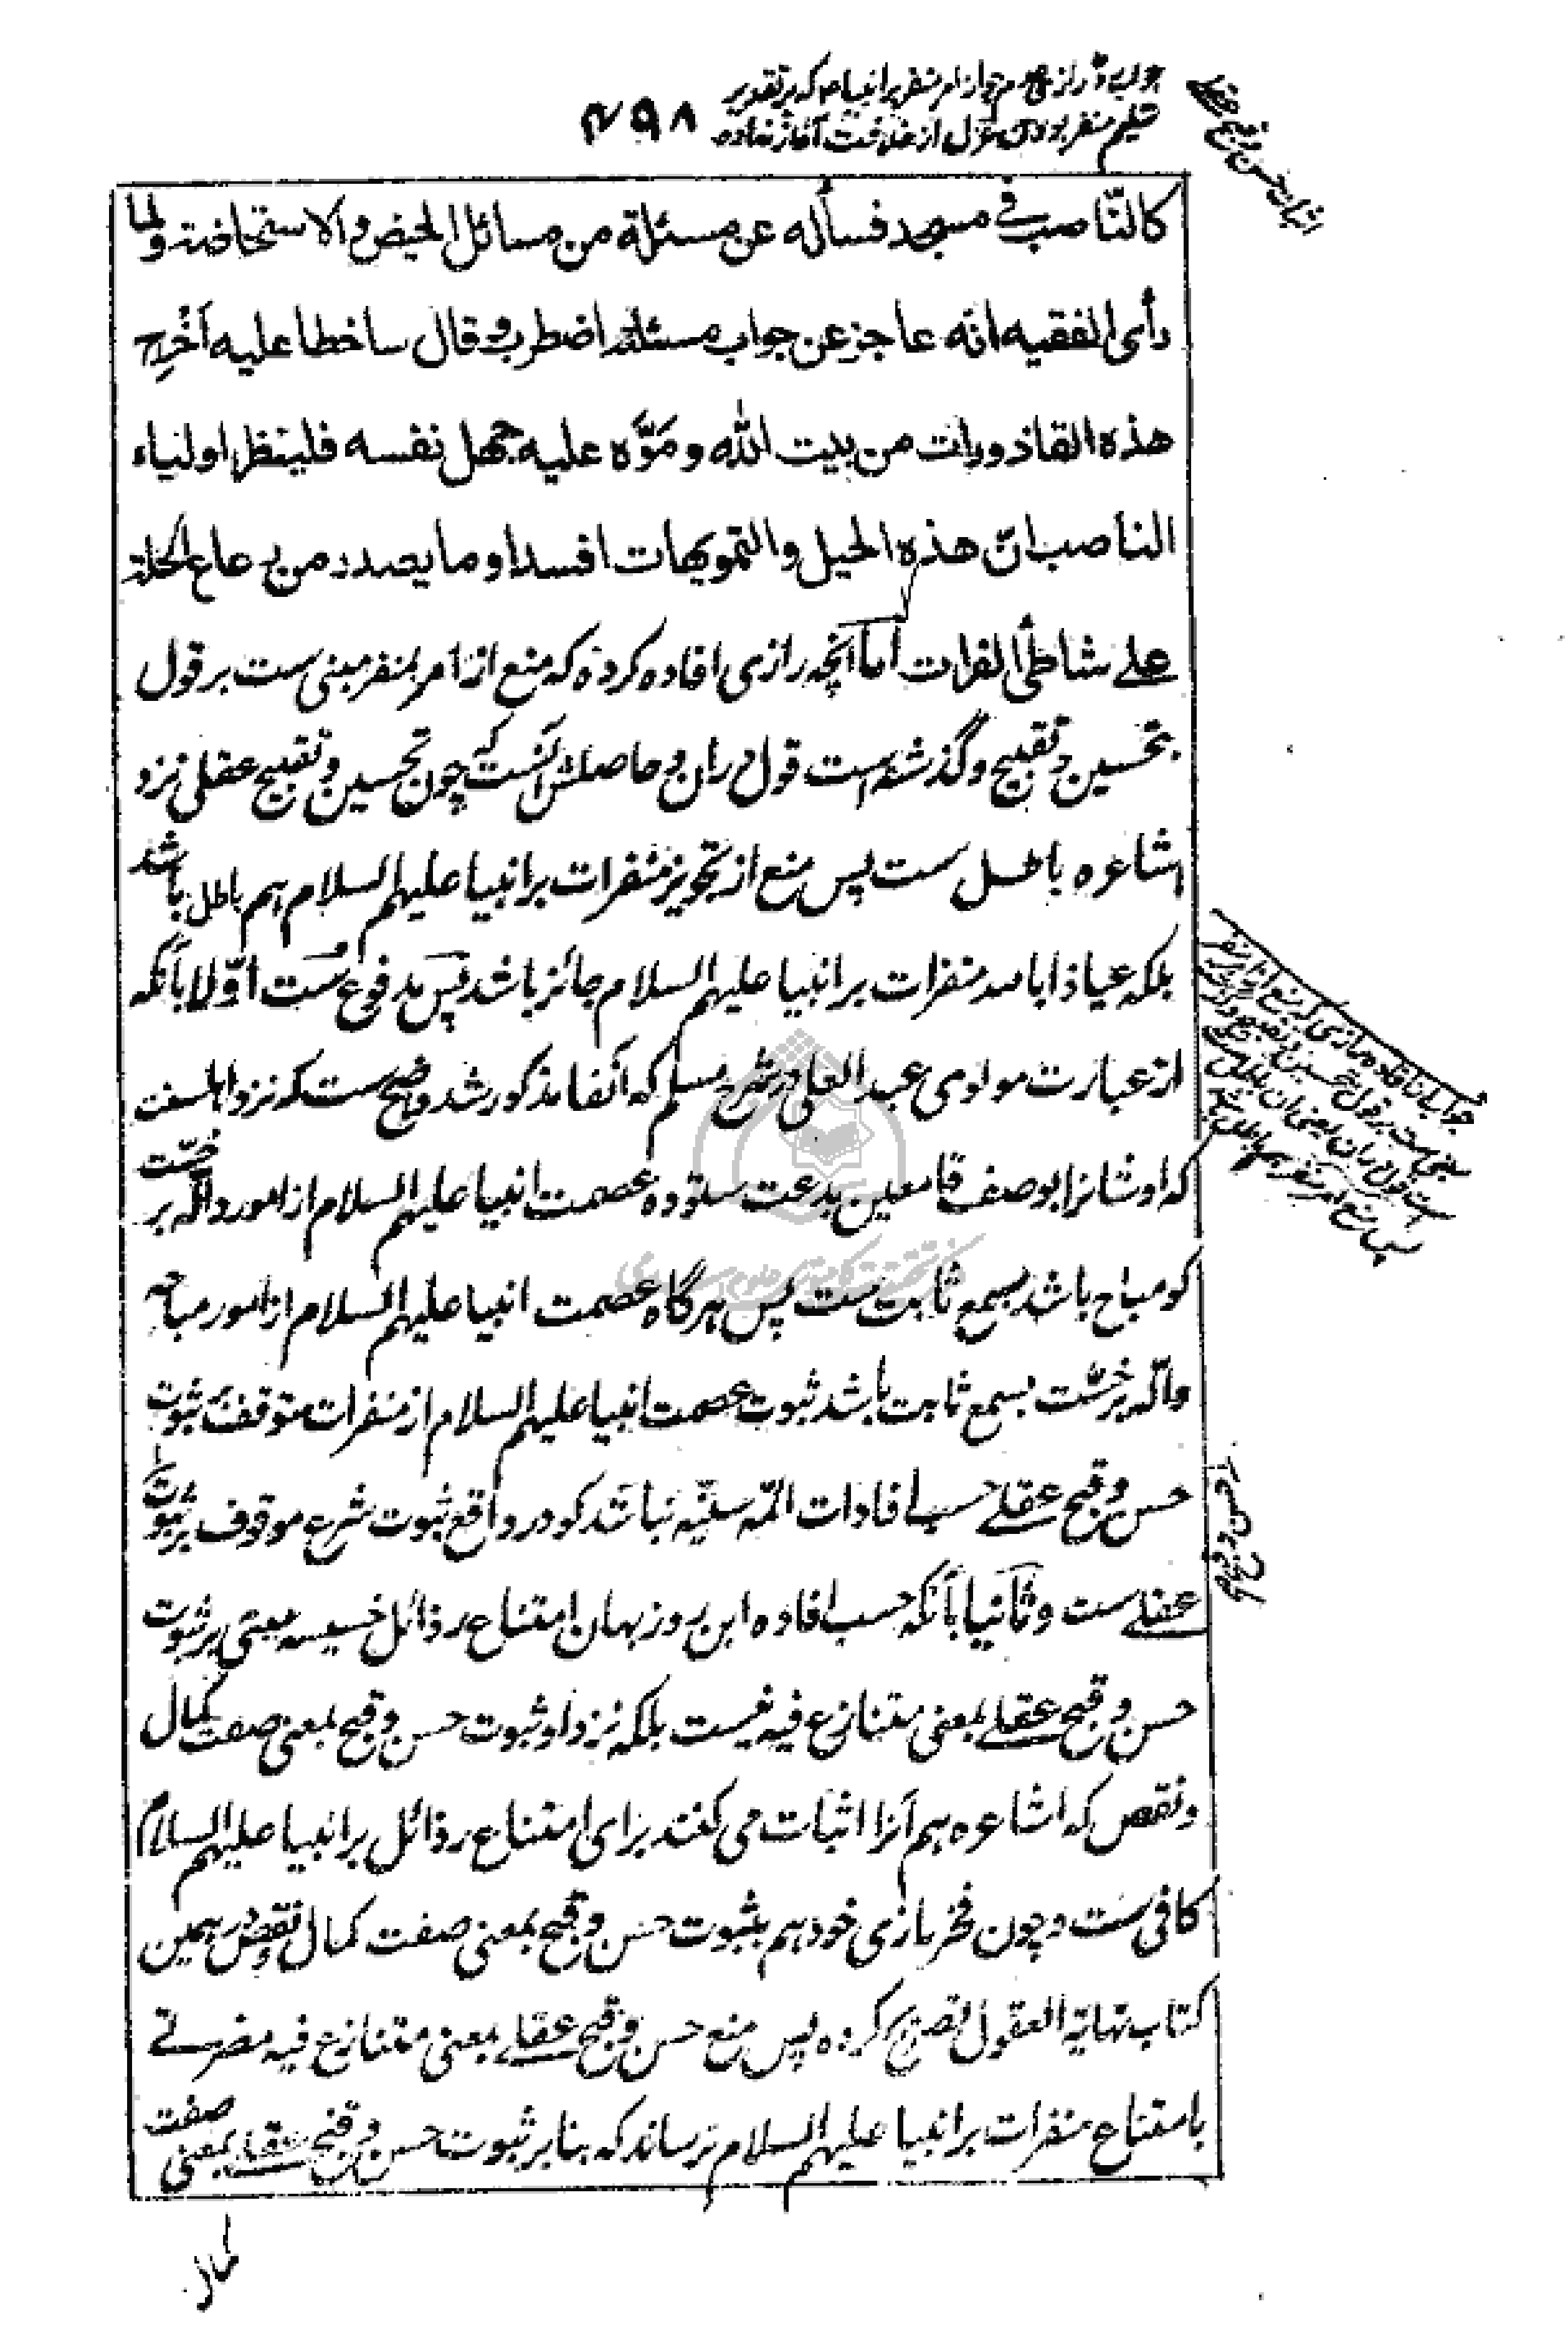 جواب رازی از نامنفر بر انبیاء که بر تقدیر
تسلیم منفر بودن عزل از خلافت آغاز نهاده
۴۹۸
اثبات حسن و قبح عقلی
کالنّاصب فی مسجد فسأله عن مسئلة من مسائل الحیض و الاستحاضة و لما
رأی الفقیه انّه عاجز عن جواب مسئلته اضطرب و قال ساخطا علیه أخرِج
هذه القاذورات من بیت الله و مَوَّه علیه جهل نفسه فلینظر اولیاء
الناصب انّ هذه الحیل و التمویهات افسد او ما یصدر من رعاع الحلة
علی شاطئ الفرات اما آنچه رازی افاده کرده که منع از امر بمنفر مبنی ست بر قول
بتحسین و تقبیح و گذشته است قول دران و حاصلش آنست که چون تحسین و تقبیح عقلی نزد
اشاعره باطل ست پس منع از تجویز منفرات بر انبیا علیهم السلام هم باطل باشد
بلکه عیاذا بالله منفرات بر انبیا علیهم السلام جائز باشد پس مدفوع ست اوّلا بآنکه
از عبارت مولوی عبد العلی در شرح مسلم که آنفا مذکور شد واضح ست که نزد اهلسنت
که اوشانرا بوصف قامعین بدعت ستوده عصمت انبیا علیهم السلام از امور دالّه بر خسّت
گو مباح باشد بسمع ثابت ست پس هرگاه عصمت انبیا علیهم السلام از امور مباحه
دالّه بر خسّت بسمع ثابت باشد ثبوت عصمت انبیا علیهم السلام از منفرات متوقف بر ثبوت
حسن و قبح عقلی حسب افادات ائمّه سنّیه نباشد گو در واقع ثبوت شرع موقوف بر ثبوت آن
عقلی ست و ثانیا بآنکه حسب افاده ابن روزبهان امتناع رذائل خسیسه مبتنی بر ثبوت
حسن و قبح عقلی بمعنی متنازع فیه نیست بلکه نزد او ثبوت حسن و قبح بمعنی صفت کمال
و نقص که اشاعره هم آنرا اثبات می کنند برای امتناع رذائل بر انبیا علیهم السلام
کافی ست و چون فخر رازی خود هم بثبوت حسن و قبح بمعنی صفت کمال و نقص در همین
کتاب نهایة العقول تصریح کرده پس منع حسن و قبح عقلی بمعنی متنازع فیه مضرتی
بامتناع منفرات بر انبیا علیهم السلام نرساند که بنا بر ثبوت حسن و قبح عقلی بمعنی صفت
جواب افاده رازی که منع از امر بمنفر
مبنی ست بر قول بتحسین و تقبیح و گذشته
است قول دران یعنی آن باطل ست
پس منع امر بمنفر هم باطل باشد
حسن و قبح
کمال